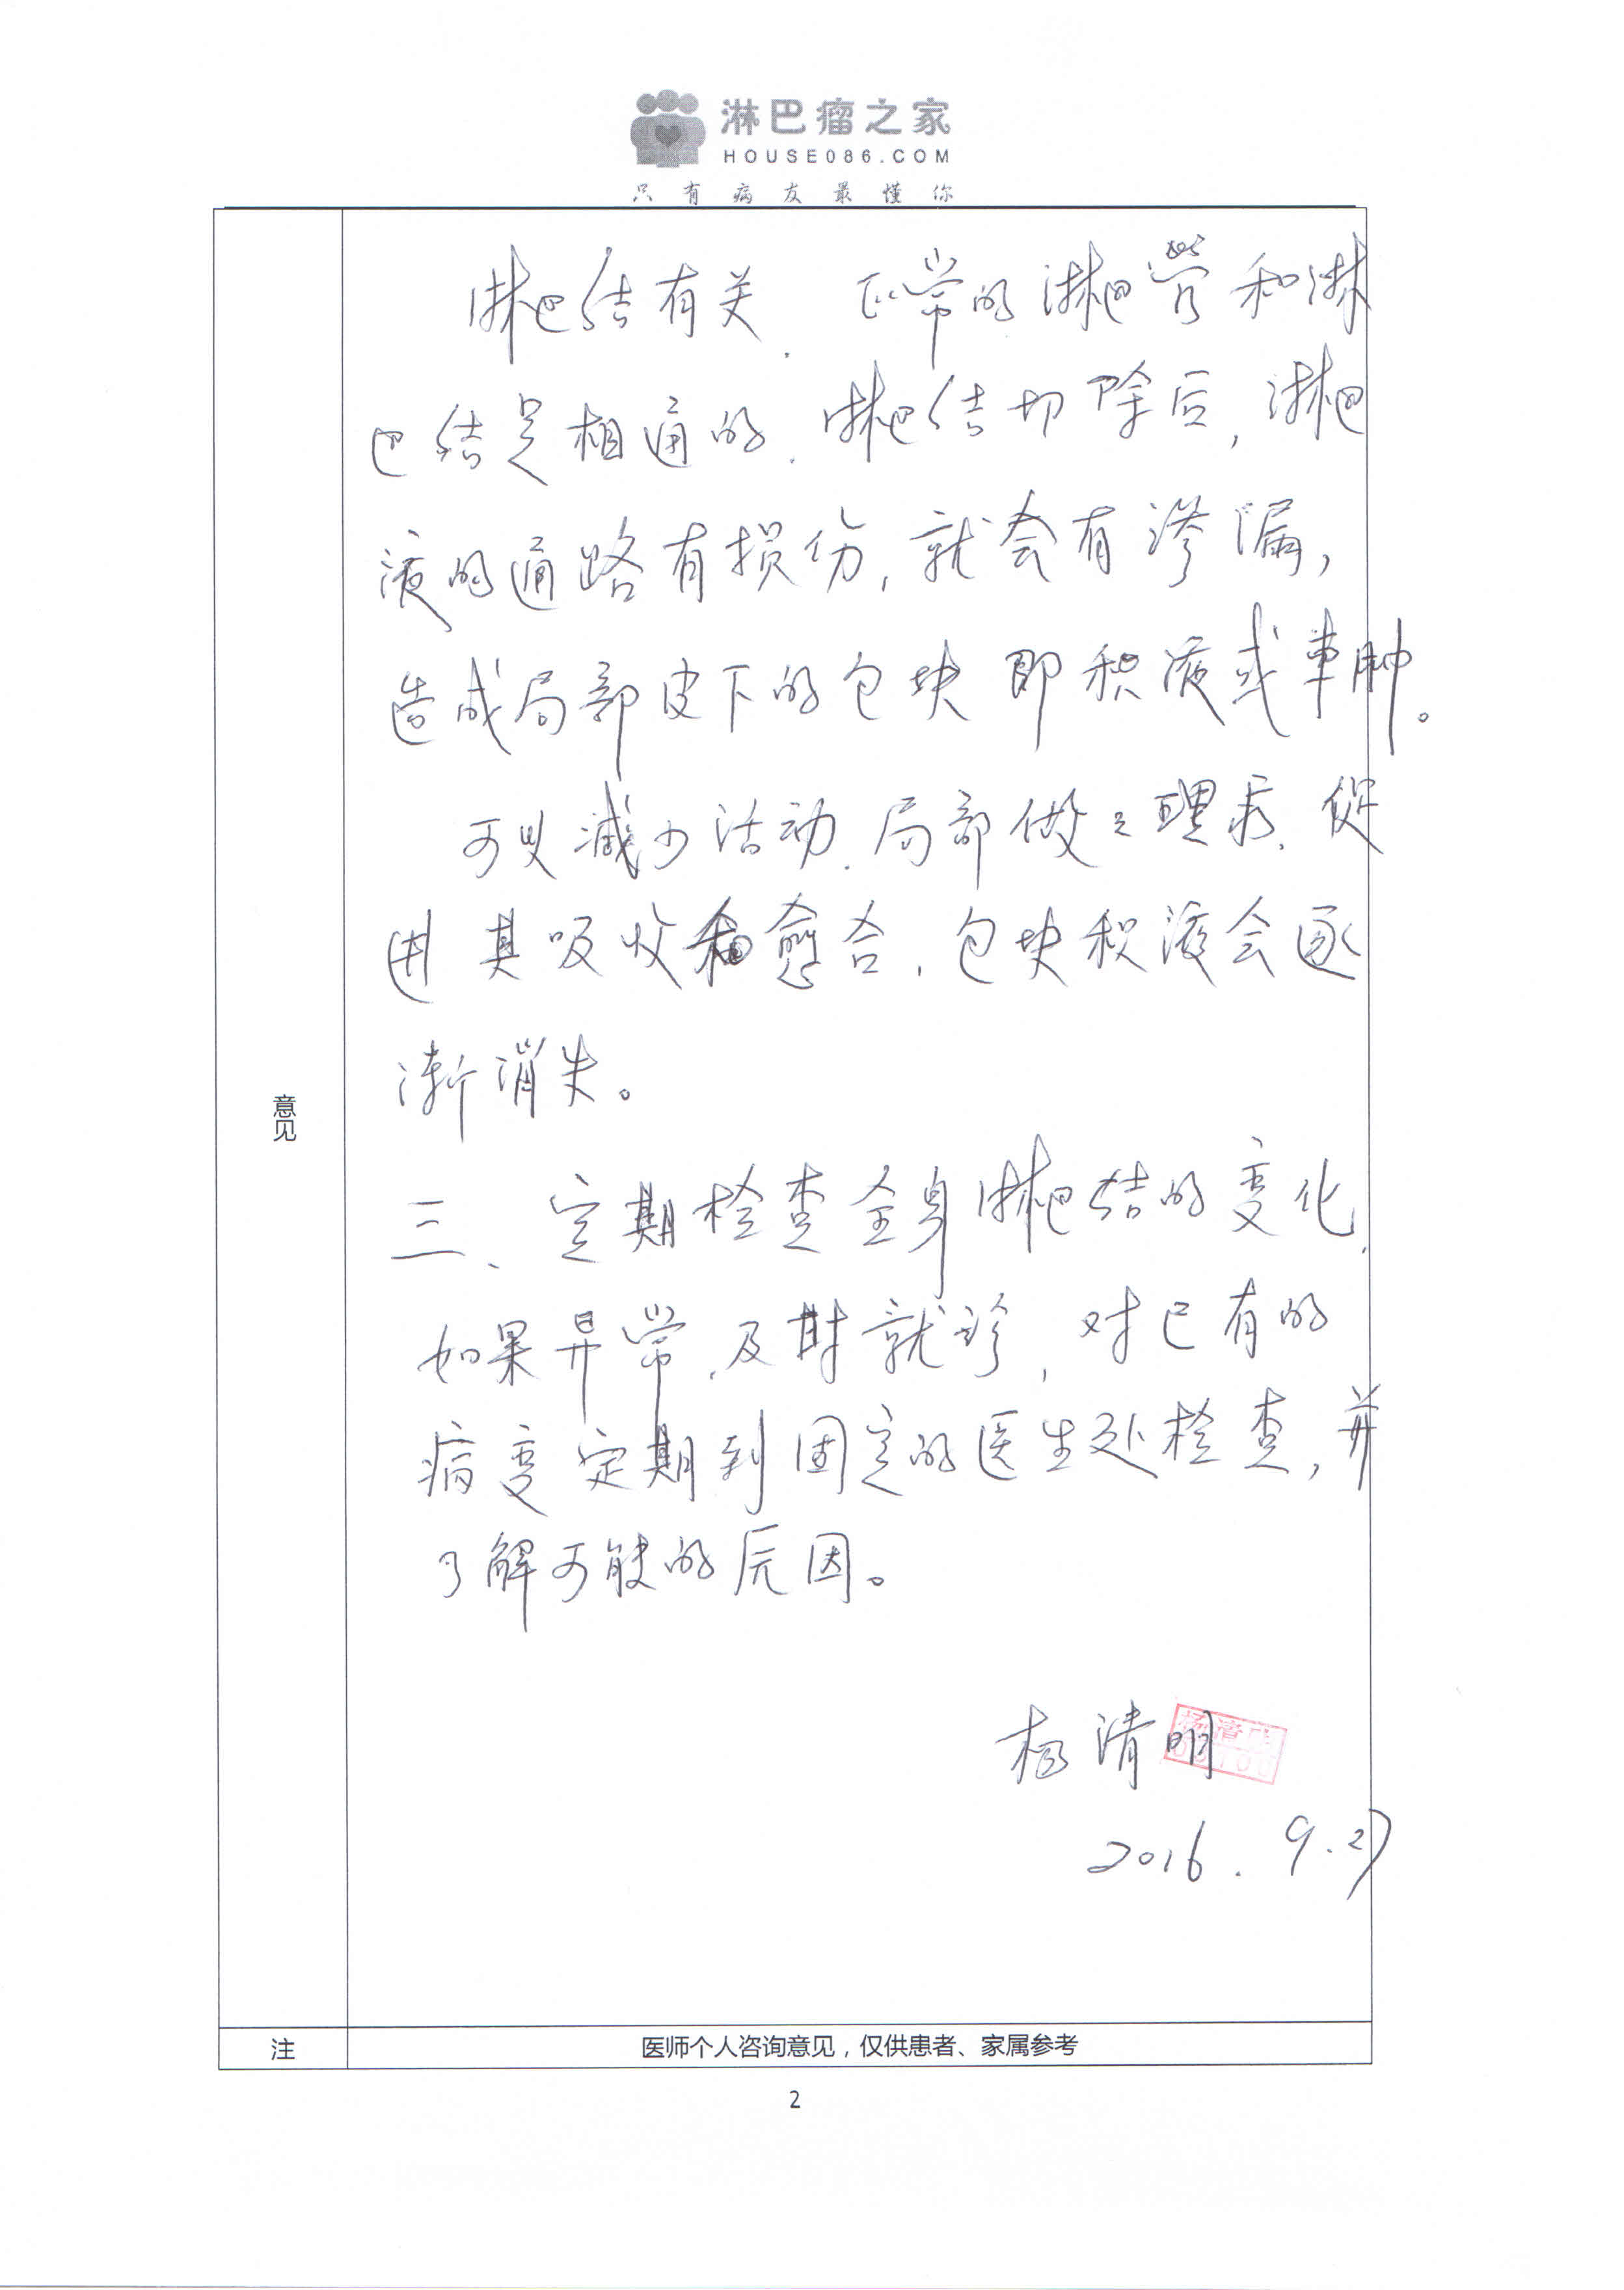 淋巴瘤之家
HOUSE086.COM
只有病友最懂你
淋巴结有关. 正常的淋巴管和淋
巴结是相通的. 淋巴结切除后, 淋巴
液的通路有损伤, 就会有渗漏,
造成局部皮下的包块即积液或
可以减少活动. 局部做 理疗. 促
进其吸收和愈合, 包块积液会逐
渐消失。
三、定期检查全身淋巴结的变化,
如果异常, 及时就诊, 对已有的
病变定期到固定的医生处检查, 并
了解可能的原因。
意见
杨清明
2016.9.27
注
医师个人咨询意见，仅供患者、家属参考
2